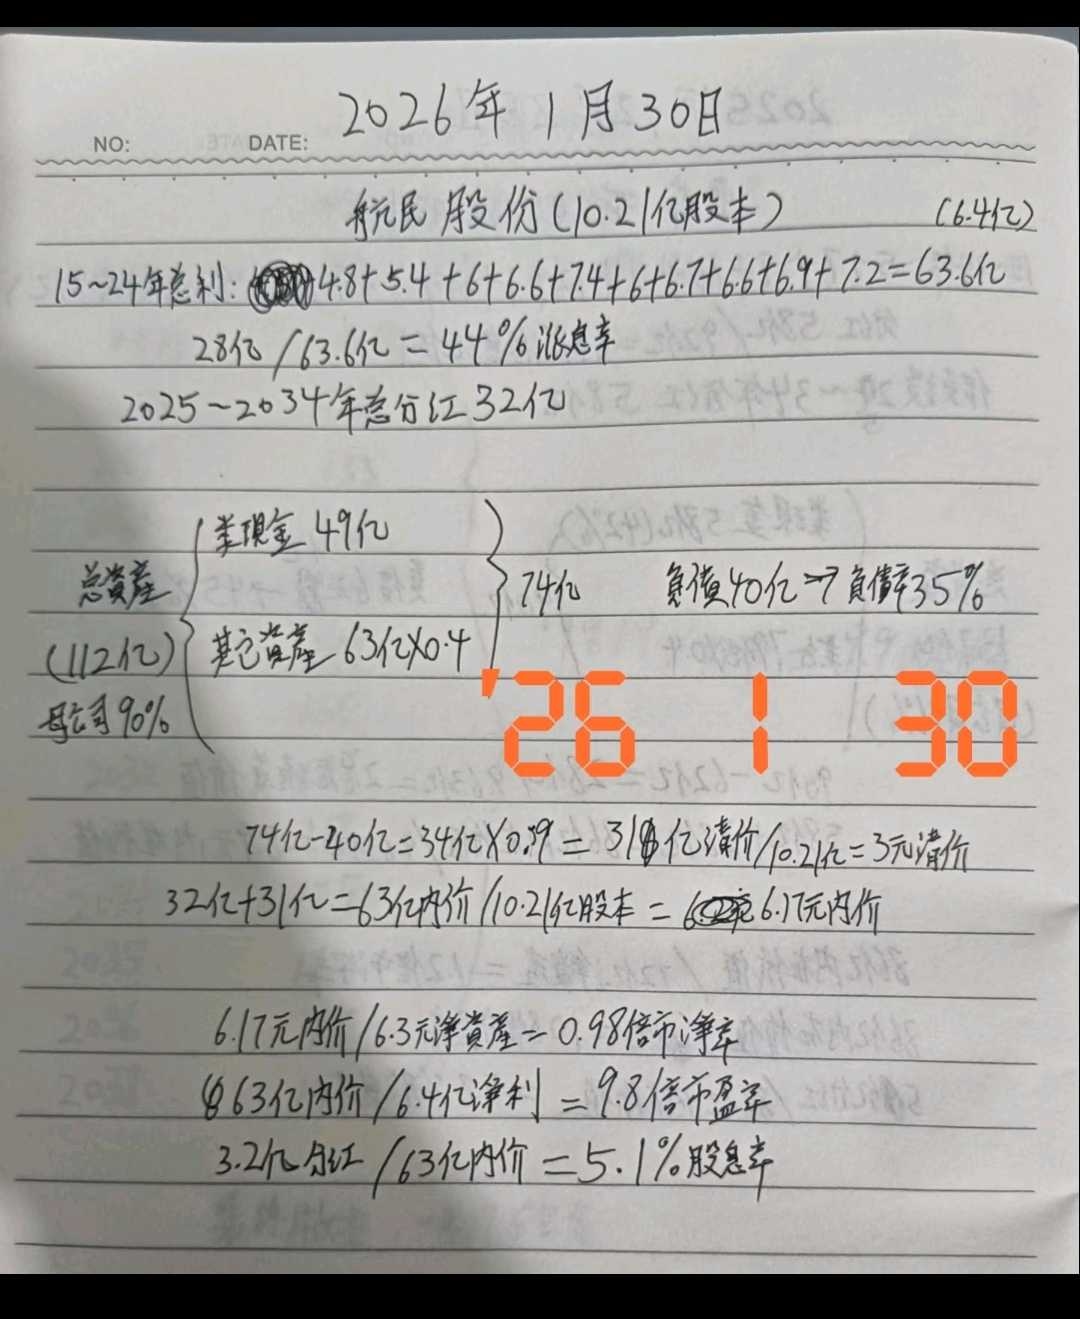 2026年1月30日
NO: DATE:
航民股份(10.21亿股本) (6.4亿)
15~24年总利: 4.8+5.4+6+6.6+7.4+6+6.7+6.6+6.9+7.2=63.6亿
28亿/63.6亿=44%派息率
2025~2034年总分红32亿
类現金 49亿
总資産 74亿 負債40亿→負債率35%
(112亿) 其它資産 63亿×0.4
母公司90%
'26 1 30
74亿-40亿=34亿×0.9=31亿清价/10.21亿=3元清价
32亿+31亿=63亿内价/10.21亿股本=6.17元内价
6.17元内价/6.3元净資産=0.98倍市净率
63亿内价/6.4亿净利=9.8倍市盈率
3.2亿分红/63亿内价=5.1%股息率